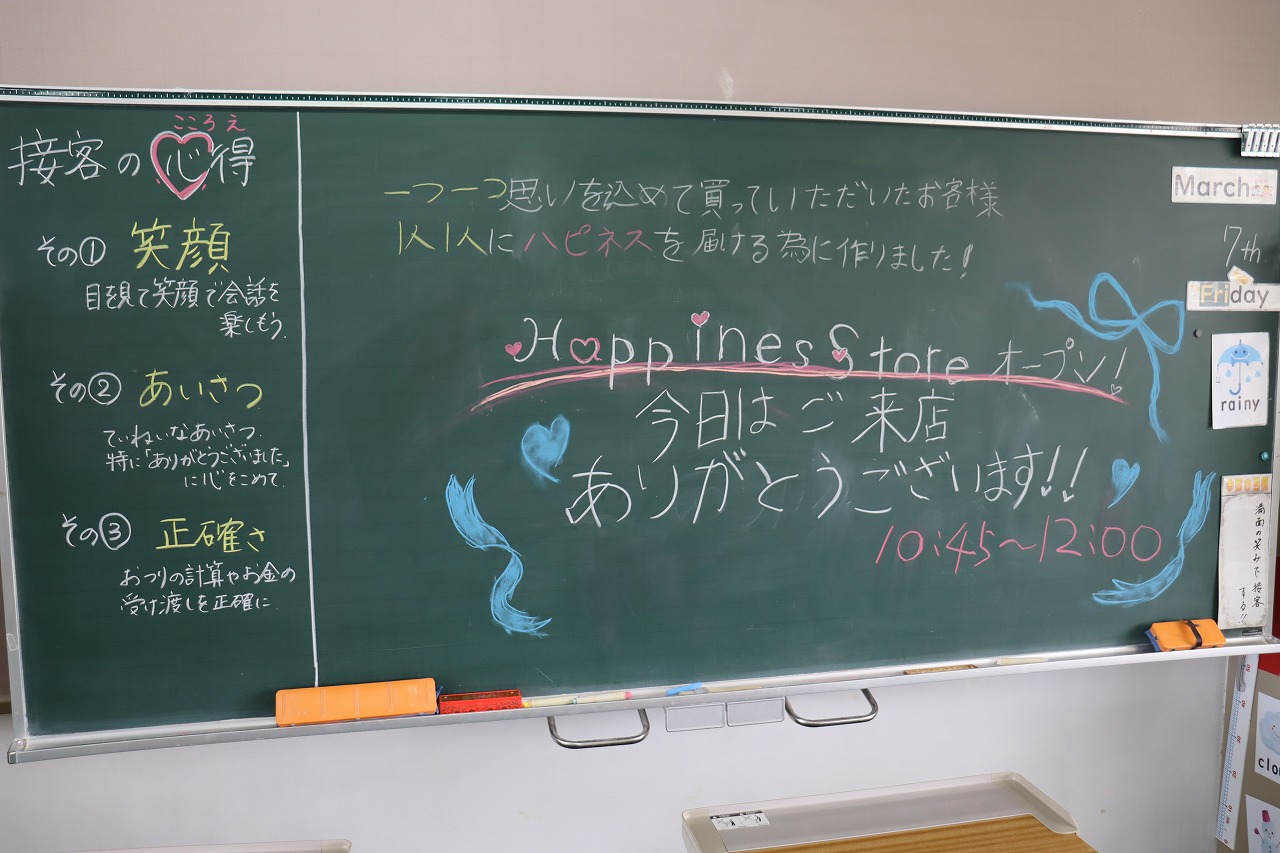 こころえ
接客の心得
その① 笑顔
目を見て笑顔で会話を
楽しもう。
その② あいさつ
ていねいなあいさつ。
特に「ありがとうございました」
に心をこめて。
その③ 正確さ
おつりの計算やお金の
受け渡しを正確に。
一つ一つ思いを込めて買っていただいたお客様
1人1人にハピネスを届ける為に作りました!
Happiness Store オープン!
今日はご来店
ありがとうございます!!
10:45~12:00
March
7th
Friday
rainy
満面の笑みで接客
する!!
clou